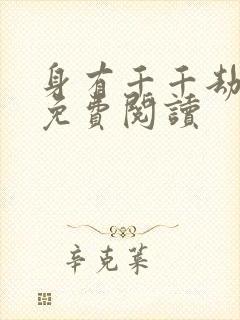 身有千千劫
免費閱讀
辛克萊